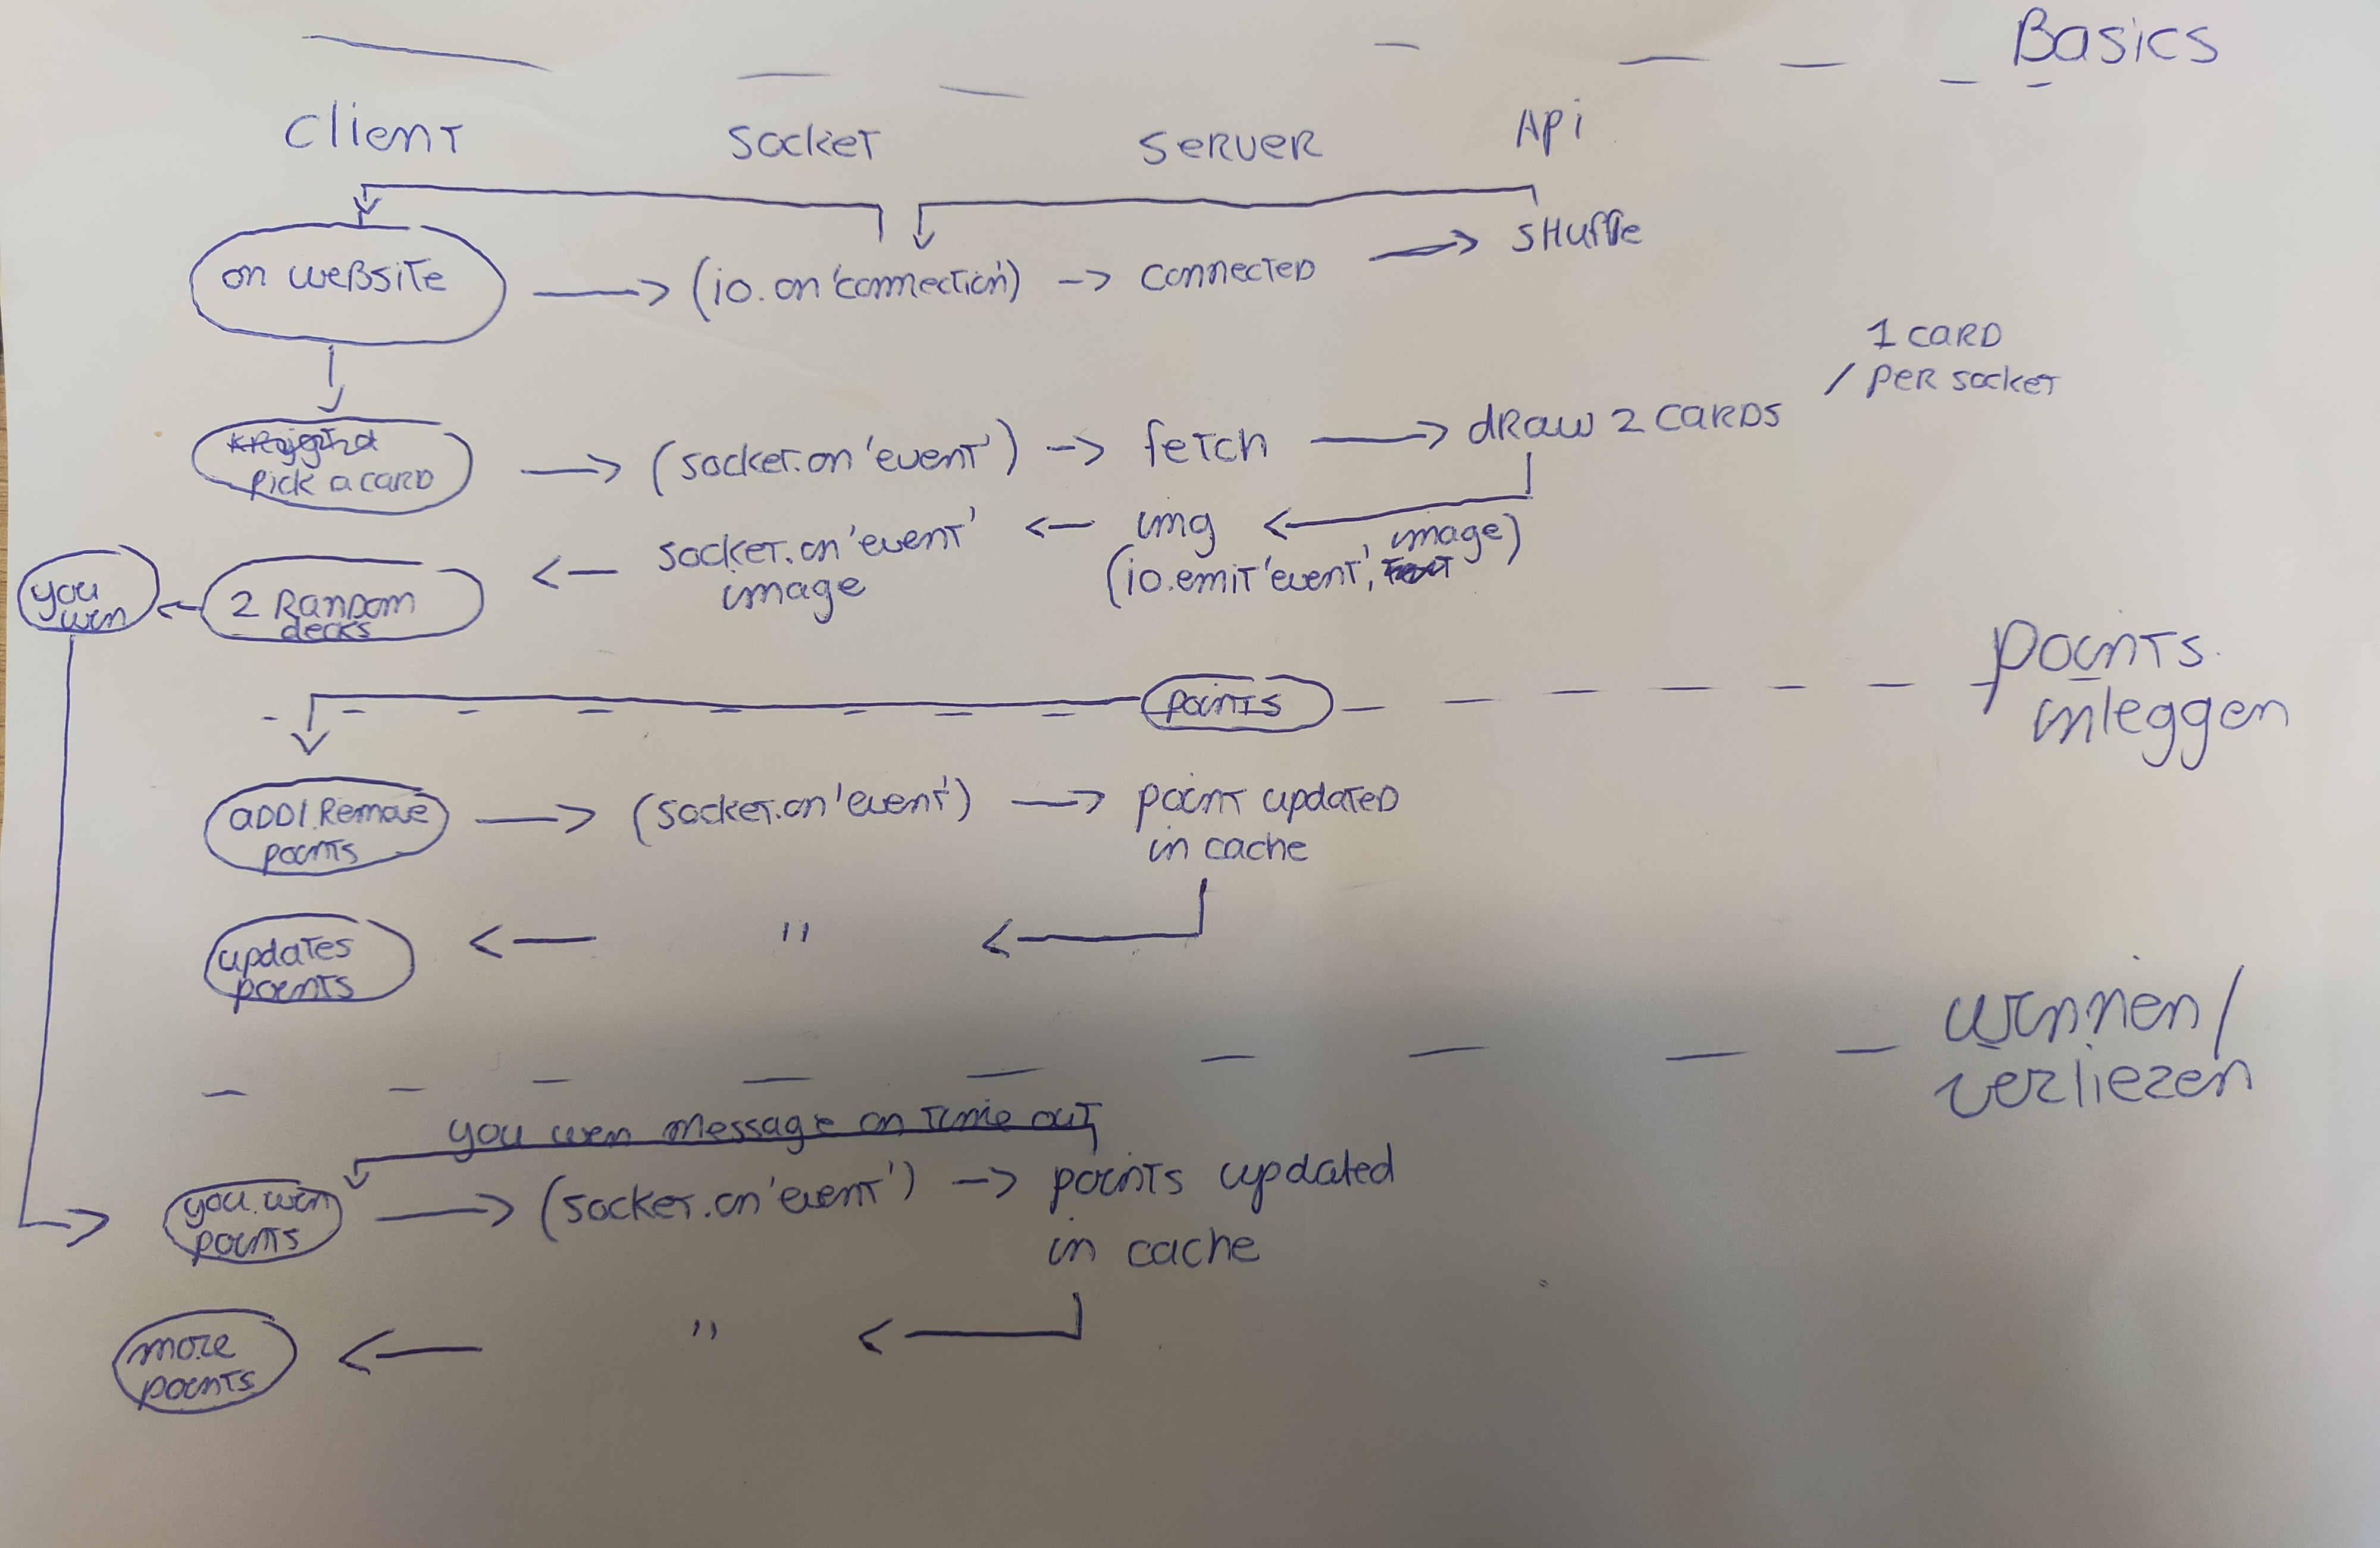 Basics
Client Socket Server Api
on website (io.on 'connection') connected shuffle
1 card
/ per socket
pick a card (socket.on 'event') fetch draw 2 cards
img
socket.on 'event' image
image (io.emit 'event', image)
you
win
2 Random
decks
points
inleggen
points
add/Remove
points
(socket.on 'event') point updated
in cache
updates
points
"
winnen/
verliezen
you win message on time out
you win
points
(socket.on 'event') points updated
in cache
more
points
"